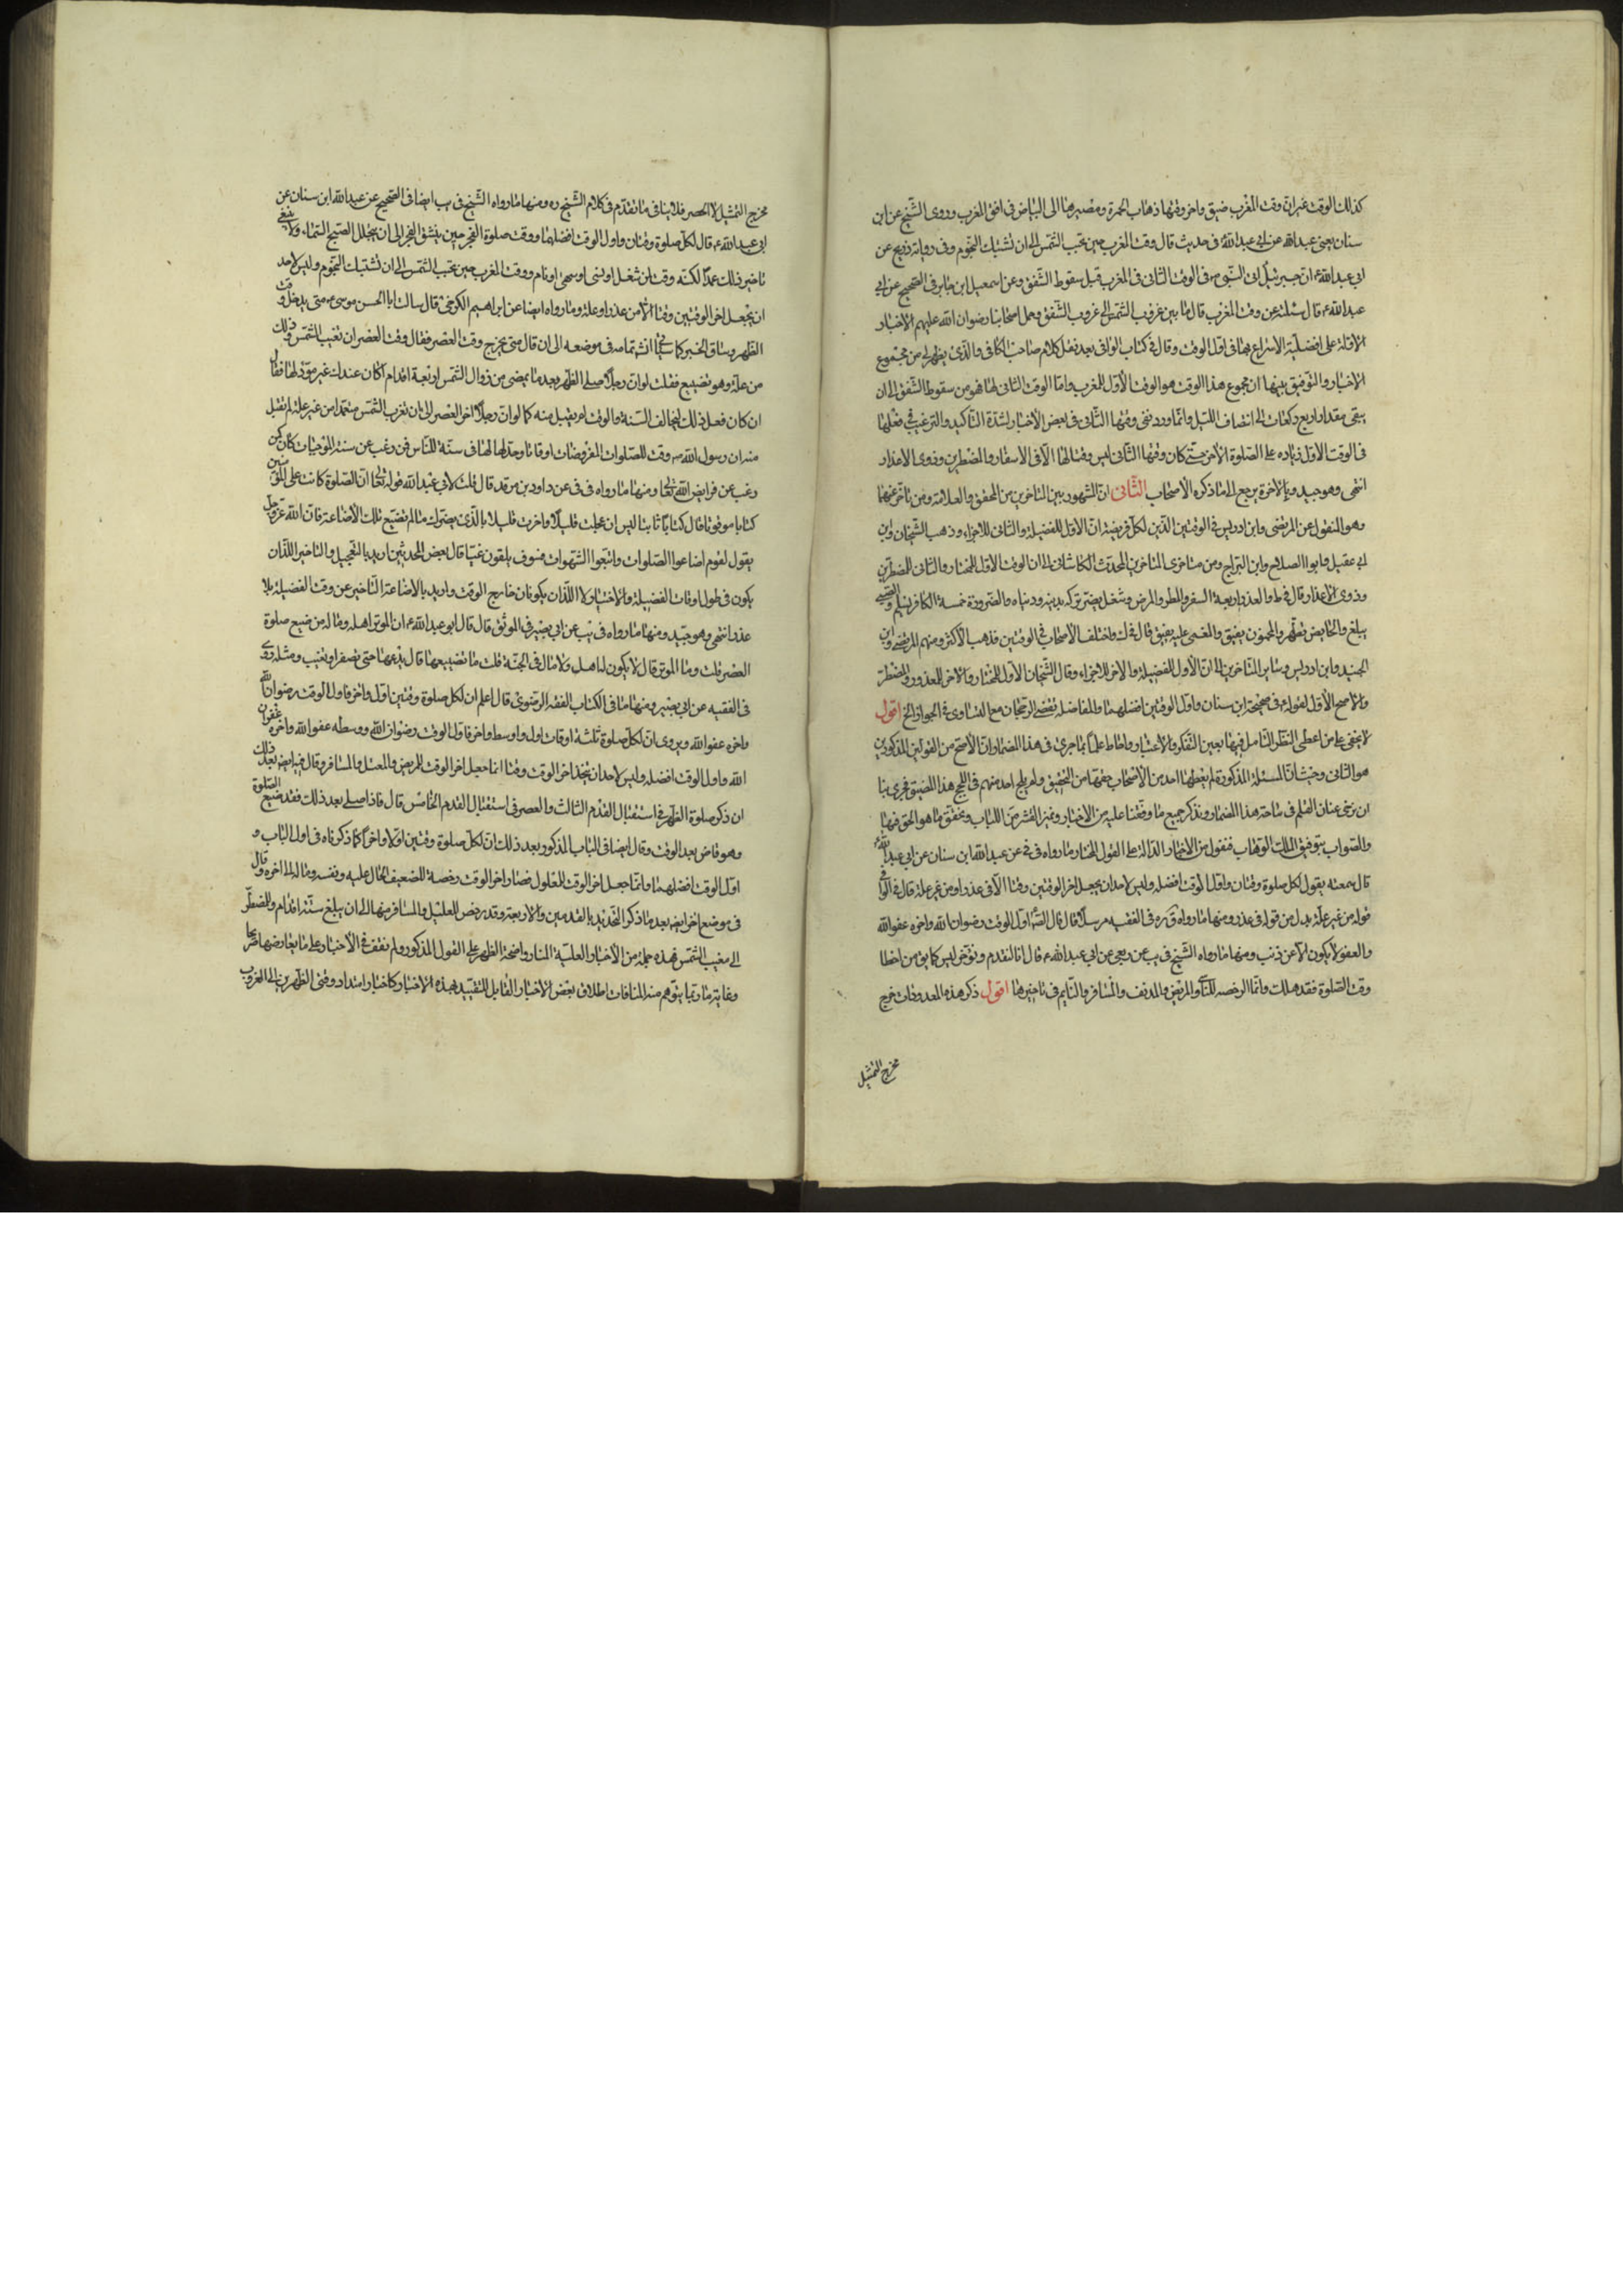 كذلك الوقت غير ان وقت المغرب ضيق واخر وقتها ذهاب الحمرة ومصيرها الى البياض فى افق المغرب وروى الشيخ عن ابن
سنان يعنى عبد الله عن ابى عبد الله فى حديث قال وقت المغرب حين تجب الشمس الى ان تشتبك النجوم وفى رواية ذريح عن
ابى عبد الله ع ان جبرئيل اتى النبى ص فى الوقت الثانى فى المغرب قبل سقوط الشفق وعن اسمعيل ابن جابر فى الصحيح عن ابى
عبد الله ع قال سئلته عن وقت المغرب قال ما بين غروب الشمس الى غروب الشفق وحمل اصحابنا رضوان الله عليهم الاخبار
الاولة على افضلية الاسراع بها فى اول الوقت وقال فى كتاب الوافى بعد نقل كلام صاحب الكافى والذى يظهر لى من مجموع
الاخبار والتوفيق بينها ان مجموع هذا الوقت هو الوقت الاول للمغرب واما الوقت الثانى لها فهو من سقوط الشفق الى ان
يبقى مقدار اربع ركعات الى انتصاف الليل وانما ورد نفى وقتها الثانى فى بعض الاخبار لشدة التاكيد والترغيب فى فعلها
فى الوقت الاول زيادة على الصلوة الاخر حتى كان وقتها الثانى ليس وقتا لها الا فى الاسفار وللمضطرين وذوى الاعذار
انتهى وهو جيد وبالاخرة يرجع الى ما ذكره الاصحاب الثانى ان المشهور بين المتاخرين من المحقق والعلامة ومن تاخر عنهما
وهو المنقول عن المرتضى وابن ادريس فى الوقتين الذين لكل فريضة ان الاول للفضيلة والثانى للاجزاء وذهب الشيخان وابن
ابى عقيل وابوا الصلاح وابن البراج ومن متاخرى المتاخرين المحدث الكاشانى الى ان الوقت الاول للمختار والثانى للمضطرين
وذوى الاعذار وقال فى ط والعذر اربعة السفر والمطر والمرض وشغل يضر تركه بدينه ودنياه والضرورة خمسة الكافر يسلم والصبى
يبلغ والحايض تطهر والمجنون يفيق والمغمى عليه يفيق قال فى ك واختلف الاصحاب فى الوقتين فذهب الاكثر ومنهم المرتضى وابن
الجنيد وابن ادريس وساير المتاخرين الى ان الاول للفضيلة والاخر للاجزاء وقال الشيخان الاول للمختار والاخر للمعذور والمضطر
والاصح الاول لقوله ع فى صحيحة ابن سنان واول الوقتين افضلهما والمفاضلة تقتضى الرجحان مع التساوى فى الجواز الخ اقول
لا يخفى على من اعطى النظر التامل فيها بعين التفكر والاعتبار واحاط علما بما جرى فى هذا المضمار ان الاصح من القولين المذكورين
هو الثانى وحيث ان المسئلة المذكورة لم يعطها احد من الاصحاب حقها من التحقيق ولم يلج احد منهم فى اللجج هذا المضيق فحرى بنا
ان نرخى عنان القلم فى ساحة هذا المضمار ونذكر جميع ما وقفنا عليه من الاخبار ونميز القشر من اللباب ونحقق ما هو الحق فيها
والصواب بتوفيق الملك الوهاب فنقول من الاخبار الدالة على القول المختار ما رواه فى فى عن عبد الله ابن سنان عن ابى عبد الله ع
قال سمعته يقول لكل صلوة وقتان واول الوقت افضله وليس لاحد ان يجعل اخر الوقتين وقتا الا فى عذر او من غير علة قال فى الوافى
قوله من غير علة بدل من قوله فى عذر ومنها ما رواه ق ره فى الفقيه مرسلا قال قال الص ع اول الوقت رضوان الله واخره عفو الله
والعفو لا يكون الا عن ذنب ومنها ما رواه الشيخ فى يب عن ربعى عن ابى عبد الله ع قال انا لنقدم ونؤخر ليس كما يق من اخطا
وقت الصلوة فقد هلك وانما الرخصة للناسى والمريض والمدنف والمسافر والنايم فى تاخيرها اقول ذكر هذه المعدودات خرج
مخرج التمثيل
مخرج التمثيل لا الحصر فلا ينافى ما تقدم فى كلام الشيخ ره ومنها ما رواه الشيخ فى يب ايضا فى الصحيح عن عبد الله ابن سنان عن
ابى عبد الله ع قال لكل صلوة وقتان واول الوقت افضلهما ووقت صلوة الفجر حين ينشق الفجر الى ان يتجلل الصبح السماء ولا ينبغى
تاخير ذلك عمدا لكنه وقت لمن شغل او نسى او سهى او نام ووقت المغرب حين تجب الشمس الى ان تشتبك النجوم وليس لاحد
ان يجعل اخر الوقتين وقتا الا من عذر او علة وما رواه ايضا عن ابراهيم الكرخى قال سالت ابا الحسن موسى ع متى يدخل وقت
الظهر وساق الخبر كما سيجئ انش تمامه فى موضعه الى ان قال متى يخرج وقت العصر فقال وقت العصر ان تغيب الشمس وذلك
من علة وهو تضييع فقلت لو ان رجلا صلى الظهر بعد ما يمضى من زوال الشمس اربعة اقدام اكان عندك غير مؤد لها فقال
ان كان فعل ذلك ليخالف السنة والوقت لم يقبل منه كما لو ان رجلا اخر العصر الى ان تغرب الشمس متعمدا من غير علة لم تقبل
منه ان رسول الله ص وقت للصلوات المفروضات اوقاتا وحد لها حدودا فى سنته للناس فمن رغب عن سنة الموجبات كان كمن
رغب عن فرايض الله تعالى ومنها ما رواه فى فى عن داود بن فرقد قال قلت لابى عبد الله قوله تعالى ان الصلوة كانت على المؤمنين
كتابا موقوتا قال كتابا ثابتا ليس ان عجلت قليلا واخرت قليلا بالذى يضرك ما لم تضيع تلك الاضاعة فان الله عز وجل
يقول لقوم اضاعوا الصلوات واتبعوا الشهوات فسوف يلقون غيا قال بعض المحدثين اريد بالتعجيل والتاخير اللذان
يكون فى طول اوقات الفضيلة والاختيار لا اللذان يكونان خارج الوقت واريد بالاضاعة التاخير عن وقت الفضيلة بلا
عذر انتهى وهو جيد ومنها ما رواه فى يب عن ابى بصير فى الموثق قال قال ابو عبد الله ع ان الموتور اهله وماله من ضيع صلوة
العصر قلت وما الموتور قال لا يكون له اهل ولا مال فى الجنة قلت ما تضييعها قال يدعها حتى تصفر او تغيب ومثله روى
فى الفقيه عن ابى بصير ومنها ما فى الكتاب الفقه الرضوى قال اعلم ان لكل صلوة وقتين اول واخر فاول الوقت رضوان الله
واخره عفو الله ويروى ان لكل صلوة ثلثة اوقات اول واوسط واخر فاول الوقت رضوان الله ووسطه عفو الله واخره غفران
الله واول الوقت افضله وليس لاحد ان يتخذ اخر الوقت وقتا انما جعل اخر الوقت للمريض والمعتل والمسافر وقال فيه ايض بعد ذلك
ان ذكر صلوة الظهر فى استقبال القدم الثالث والعصر فى استقبال القدم الخامس قال فاذا صلى بعد ذلك فقد ضيع الصلوة
وهو قاض بعد الوقت وقال ايضا فى الباب المذكور بعد ذلك ان لكل صلوة وقتين اولا واخرا كما ذكرناه فى اول الباب و
اول الوقت افضلهما وانما جعل اخر الوقت للمعلول فصار اخر الوقت رخصة للضعيف لحال عليه ونفسه وماله الى اخره وقال
فى موضع اخر ايض بعد ما ذكر التحديد بالقدمين والاربعة وقد رخص للعليل والمسافر منها الى ان يبلغ ستة اقدام وللمضطر
الى مغيب الشمس فهذه جملة من الاخبار العلية المنار واضحة الظهور على القول المذكور ولم نقف فى الاخبار على ما يعارضها صريحا
وغاية ما ربما يتوهم منه المنافات اطلاق بعض الاخبار القابل للتقييد بهذه الاخبار كاخبار امتداد وقتى الظهرين الى الغروب